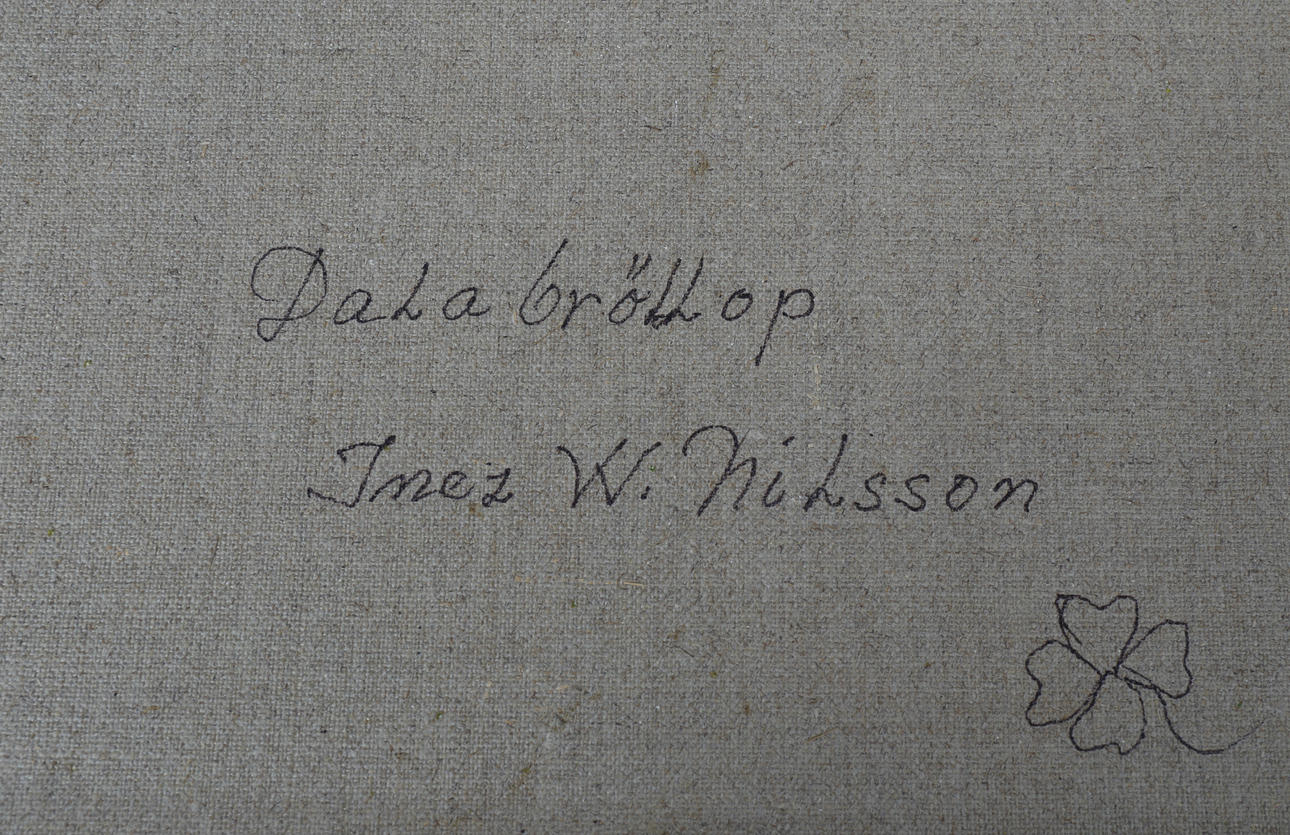 Dala bröllop
Inez W. Nilsson